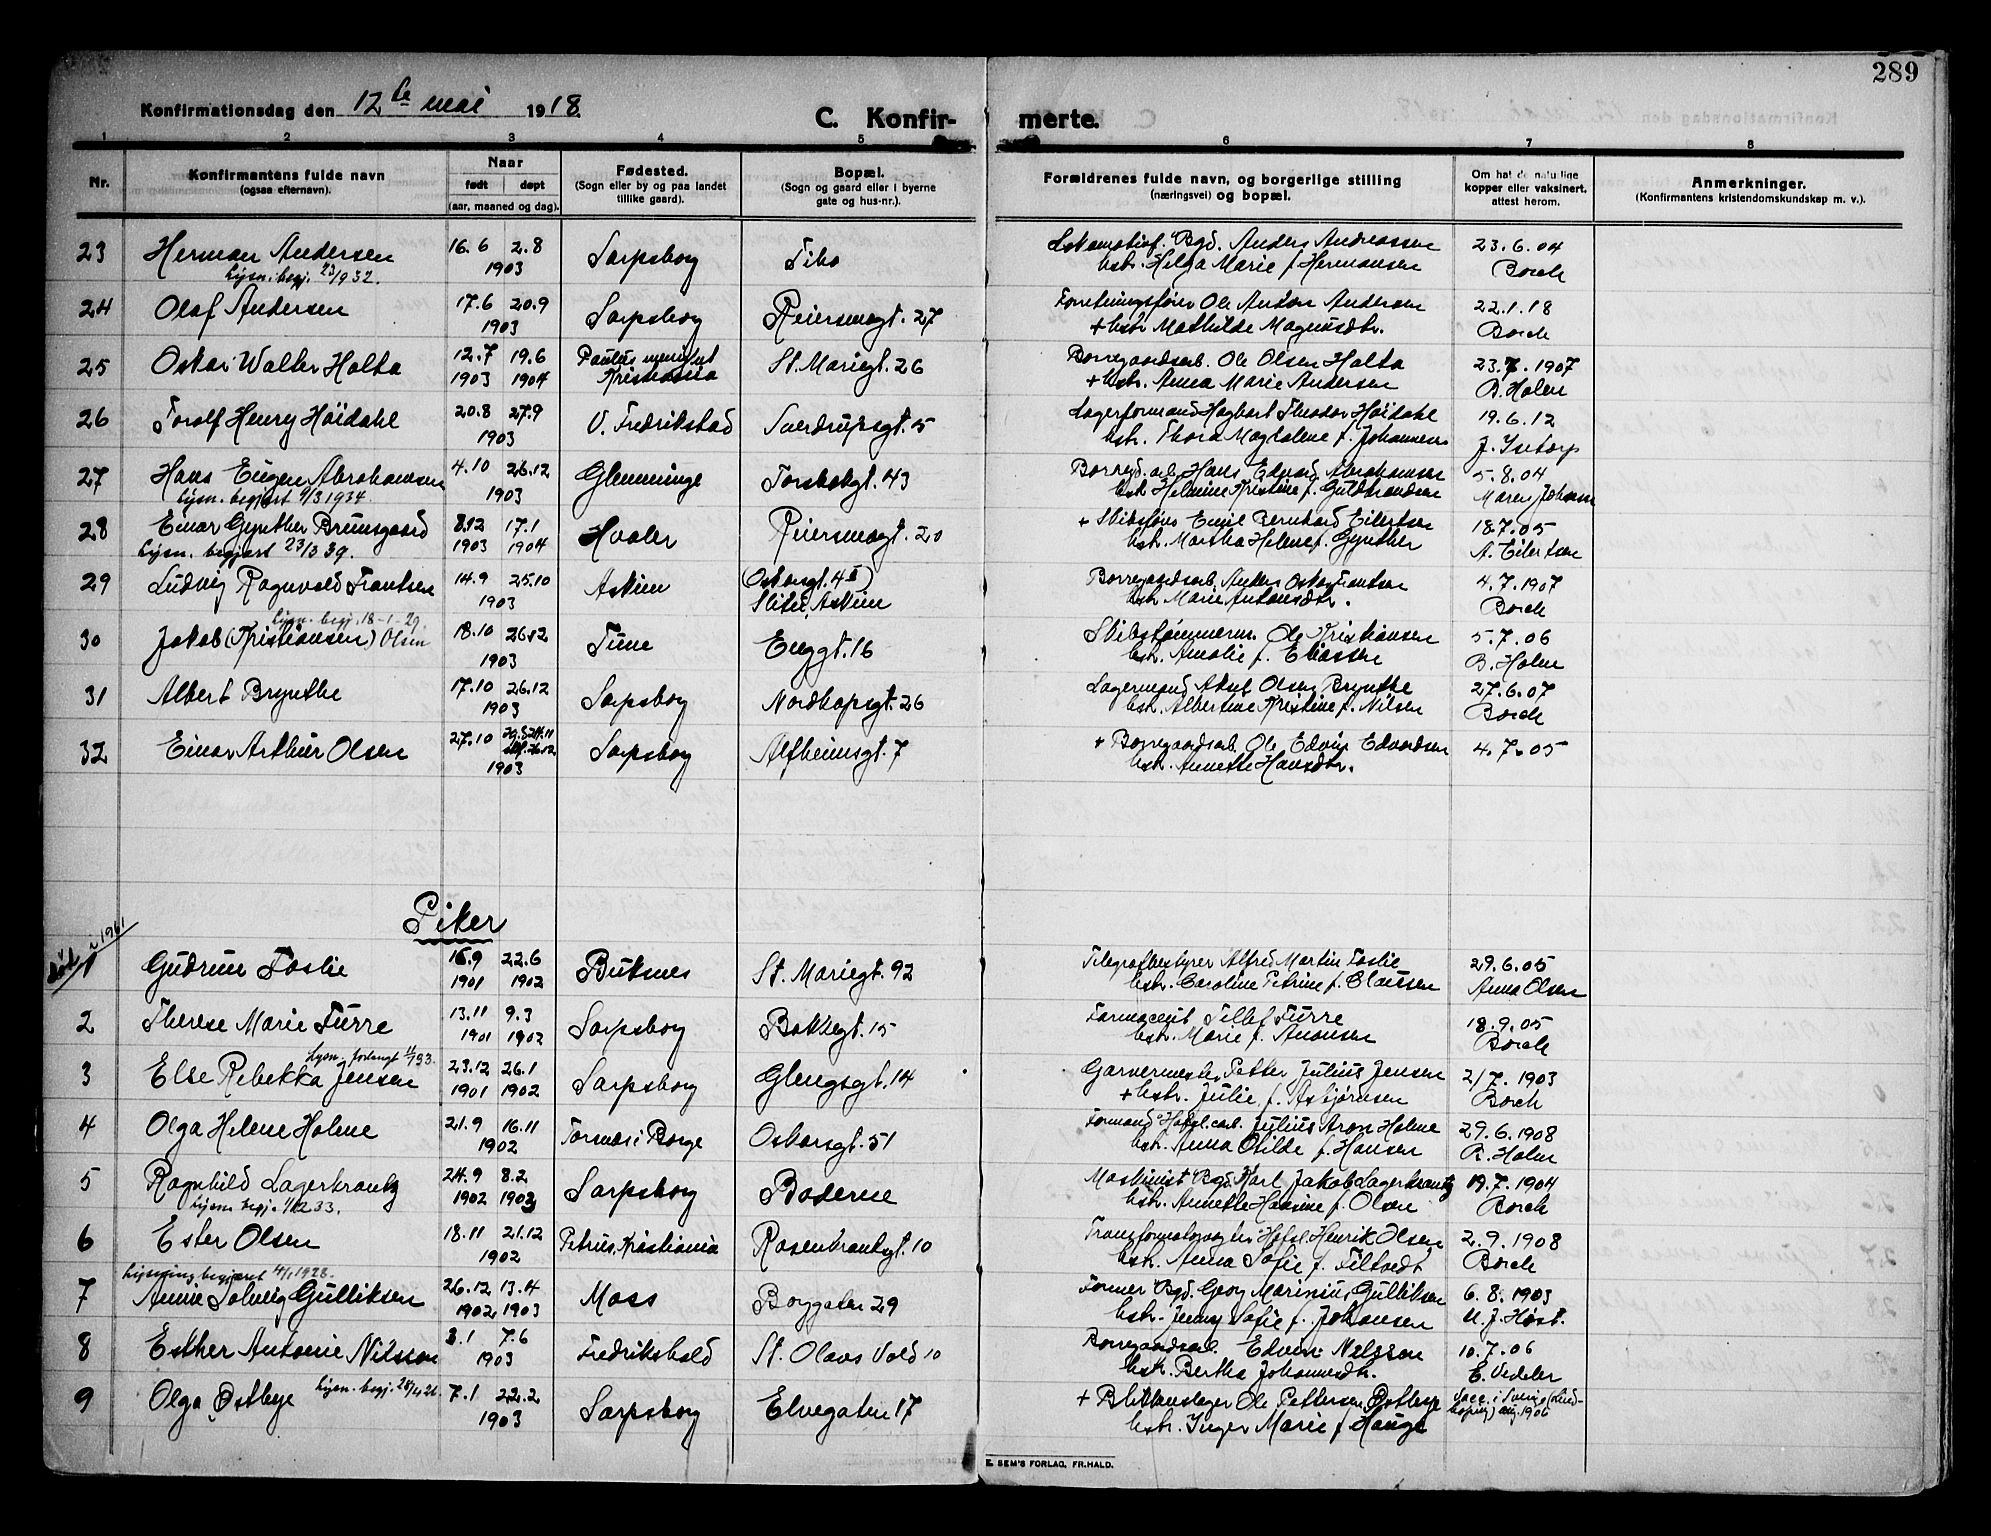 289
Konfirmationsdag den 12te mai 1918.
C. Konfir- merte.
1 2 3 4 5 6 7 8
Nr.
Konfirmantens fulde navn
(ogsaa efternavn).
Naar
født døpt
(aar, maaned og dag).
Fødested.
(Sogn eller by og paa landet
tillike gaard).
Bopæl.
(Sogn og gaard eller i byerne
gate og hus-nr.).
Forældrenes fulde navn, og borgerlige stilling
(næringsvei) og bopæl.
Om hat de naturlige
kopper eller vaksinert,
attest herom.
Anmerkninger.
(Konfirmantens kristendomskundskap m. v.).
23 Herman Andersen 16.6 2.8 1903 Sarpsborg Tibo Lokomotivf. Bgd. Anders Andreassen 23.6.04
Lysn. begj. 23/1932. hstr. Helga Marie f. Hermansen Borch
24 Olaf Andersen 17.6 20.9 1903 Sarpsborg Reiersensgt. 27 Forretningsfører Ole Anton Andersen 22.1.18
+ hstr. Mathilde Magnusdtr. Borch
25 Oskar Walter Holta 12.7 19.6 Paulus menighet St. Mariegt. 26 Borregaardsarb. Ole Olsen Holta 23.7.1907
1903 1904 Kristiania + hstr. Anna Marie Andersen B. Holm
26 Torolf Henry Höidahl 20.8 27.9 1903 V. Fredrikstad Sverdrupsgt. 5 Lagerformand Hagbart Theodor Höidahl 19.6.12
hstr. Thora Magdalene f. Johannesen J. Ystorp
27 Hans Eugen Abrahamsen 4.10 26.12 1903 Glemminge Torsbekgt. 43 Borregd. arb. Hans Edvard Abrahamsen 5.8.04
Lysn. begjært 9/3 1934. hstr. Helmine Kristine f. Guldbrandsen Maren Johansen
28 Einar Gynther Brunsgaard 8.12 17.1 Hvaler Reiersensgt. 20 + Skibsfører Emil Bernhard Eilertsen 18.7.05
Lysn. begjært 23/3 39. 1903 1904 hstr. Martha Helene f. Gynther A. Eilertsen
29 Ludvig Ragnvald Frantsen 14.9 25.10 1903 Askim (Oskarsgt. 4 I) Borregaardsarb. Anders Oskar Frantsen 4.7.1907
Slitu, Askim hstr. Marie Antonsdtr. Borch
Lysn. begj. 18-1-29.
30 Jakob (Kristiansen) Olsen 18.10 26.12 1903 Tune Enggt. 16 Skibstømmerm. Ole Kristiansen 5.7.06
hstr. Amalie f. Eliassen B. Holm
31 Albert Brynthe 17.10 26.12 1903 Sarpsborg Nordkapsgt. 26 Lagermand Aksel Olsen Brynthe 27.6.07
hstr. Albertine Kristine f. Nilsen Borch
32 Einar Arthur Olsen 27.10 1903 Sarpsborg Alfheimsgt. 7 + Borregaardsarb. Ole Edvin Edvardsen 4.7.05
hstr. Annette Hansdtr.
Piker
død i 1961
1 Gudrun Foslie 15.9 22.6 Buksnes St. Mariegt. 92 Telegrafbestyrer Alfred Martin Foslie 29.6.05
1901 1902 hstr. Caroline Petrine f. Claussen Anna Olsen
2 Therese Marie Furre 13.11 9.3 Sarpsborg Bakkegt. 15 Farmaceut Tellef Furre 18.9.05
1901 1902 hstr. Marie f. Aronsen Borch
Lysn. forlangt 11/33.
3 Else Rebekka Jensen 23.12 26.1 Sarpsborg Glengsgt. 14 Garvermester Petter Julius Jensen 2/7.1903
1901 1902 + hstr. Julie f. Asbjørnsen Borch
4 Olga Helene Holme 21.9 16.11 1902 Tornæs i Borge Oskarsgt. 51 Formand Hafsl. carb. Julius Aron Holme 29.6.1908
hstr. Anna Otilde f. Hansen B. Holm
5 Ragnhild Lagerkrantz 24.9 8.2 Sarpsborg Boderne Maskinist Bgd. Karl Jakob Lagerkrantz 19.7.1904
Lysn. begj. 1/12 33. 1902 1903 hstr. Annette Hansine f. Olsen Borch
6 Ester Olsen 18.11 21.12 1902 Petrus, Kristiania Rosenkrantzgt. 10 Transformatorvogter Hafsl. Henrik Olsen 2.9.1908
hstr. Anna Sofie f. Filtvedt Borch
Lysning begjæret 4/1 1928.
7 Annie Solveig Gulliksen 26.12 13.4 Moss Borggaten 29 Former Bgd. Georg Marinius Gulliksen 6.8.1903
1902 1903 hstr. Jenny Sofie f. Johansen U. J. Høst.
8 Esther Antonie Nilsson 3.1 7.6 1903 Fredrikshald St. Olavs Vold 10 Borregaardsarb. Edvin Nilsson 10.7.06
hstr. Bertha Johannesdtr. E. Vedeler
9 Olga Østbye Lysn. begj. 28/4 26 7.1 22.2 1903 Sarpsborg Elvegaten 17 + Blikkenslager Ole Pettersen Østbye Vacc. i Sverige (Lind-
hstr. Inger Marie f. Hauge köping) aug. 1906
E. SEM'S FORLAG, FR.HALD.